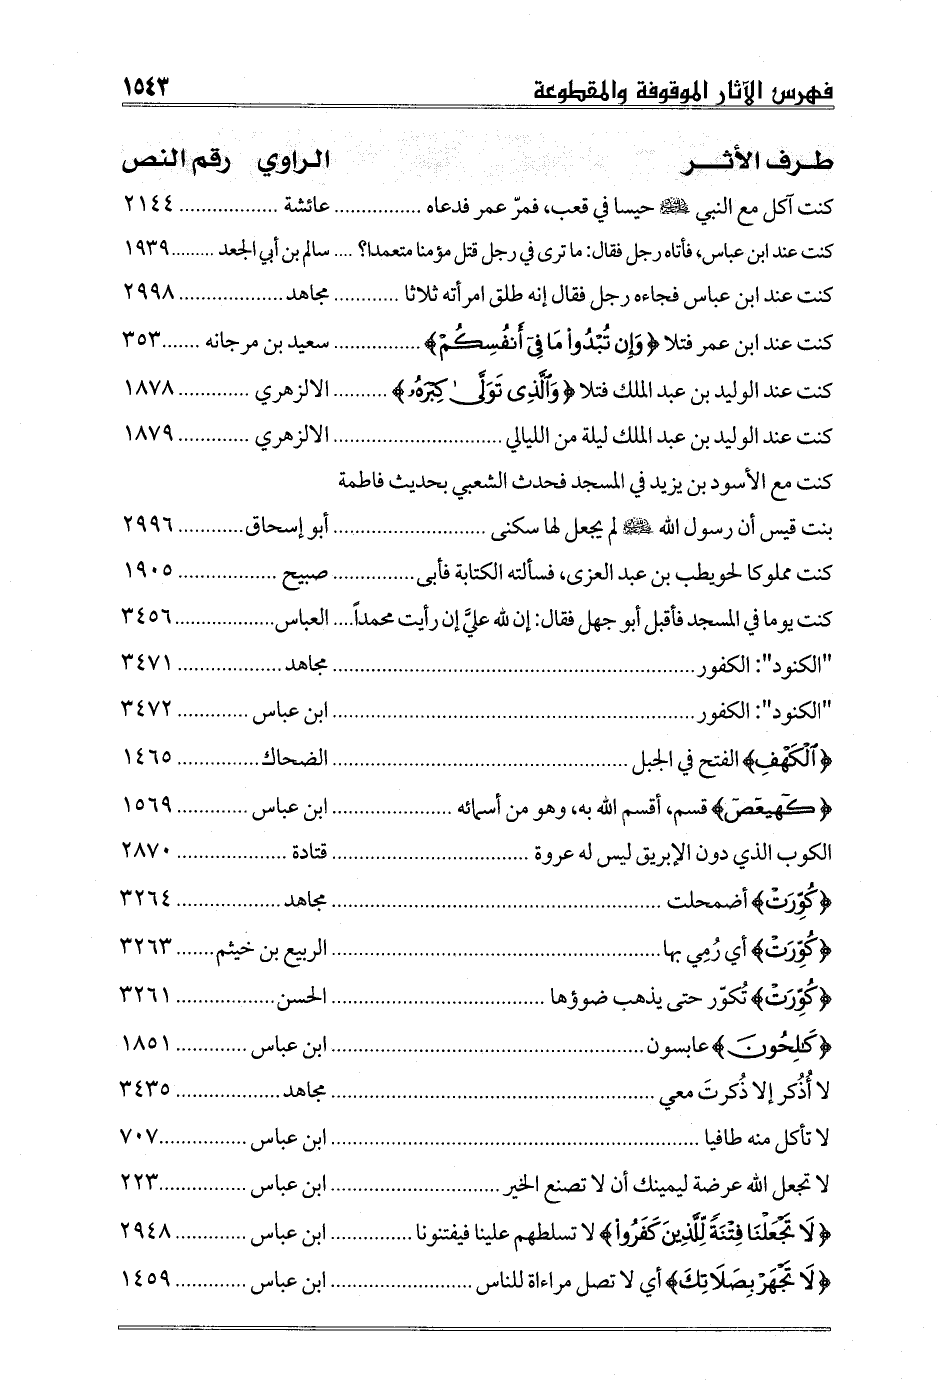 فهرس الآثار الموقوفة والمقطوعة ١٥٤٣
طرف الأثر الراوي رقم النص
كنت آكل مع النبي ﷺ حيسا في قعب، فمرّ عمر فدعاه ................ عائشة .................. ٢١٤٤
كنت عند ابن عباس، فأتاه رجل فقال: ما ترى في رجل قتل مؤمنا متعمدا؟ .... سالم بن أبي الجعد ......... ١٩٣٩
كنت عند ابن عباس فجاءه رجل فقال إنه طلق امرأته ثلاثا ............ مجاهد .................... ٢٩٩٨
كنت عند ابن عمر فتلا ﴿وَإِن تُبْدُوا۟ مَا فِىٓ أَنفُسِكُمْ﴾ ................ سعيد بن مرجانه ....... ٣٥٣
كنت عند الوليد بن عبد الملك فتلا ﴿وَٱلَّذِى تَوَلَّىٰ كِبْرَهُۥ﴾ .......... الالزهري ............. ١٨٧٨
كنت عند الوليد بن عبد الملك ليلة من الليالي ............................... الالزهري ............. ١٨٧٩
كنت مع الأسود بن يزيد في المسجد فحدث الشعبي بحديث فاطمة
بنت قيس أن رسول الله ﷺ لم يجعل لها سكنى ............................ أبو إسحاق ............ ٢٩٩٦
كنت مملوكا لحويطب بن عبد العزى، فسألته الكتابة فأبى ............... صبيح .................. ١٩٠٥
كنت يوما في المسجد فأقبل أبو جهل فقال: إن لله عليَّ إن رأيت محمداً .... العباس .................. ٣٤٥٦
"الكنود": الكفور .................................................................. مجاهد .................... ٣٤٧١
"الكنود": الكفور .................................................................. ابن عباس ............. ٣٤٧٢
﴿ٱلْكَهْفِ﴾ الفتح في الجبل ...................................................... الضحاك ............... ١٤٦٥
﴿كٓهيعٓصٓ﴾ قسم، أقسم الله به، وهو من أسمائه ...................... ابن عباس ............. ١٥٦٩
الكوب الذي دون الإبريق ليس له عروة .................................... قتادة .................... ٢٨٧٠
﴿كُوِّرَتْ﴾ أضمحلت ............................................................ مجاهد ................... ٣٢٦٤
﴿كُوِّرَتْ﴾ أي رُمِي بها ............................................................ الربيع بن خيثم ....... ٣٢٦٣
﴿كُوِّرَتْ﴾ تُكوّر حتى يذهب ضوؤها ....................................... الحسن .................. ٣٢٦١
﴿كَٰلِحُونَ﴾ عابسون ......................................................... ابن عباس ............. ١٨٥١
لا أُذكر إلا ذُكرتَ معي ........................................................... مجاهد ................... ٣٤٣٥
لا تأكل منه طافيا .................................................................. ابن عباس ................ ٧٠٧
لا تجعل الله عرضة ليمينك أن لا تصنع الخير ............................... ابن عباس ................ ٢٢٣
﴿لَا تَجْعَلْنَا فِتْنَةً لِّلَّذِينَ كَفَرُوا۟﴾ لا تسلطهم علينا فيفتنونا ............... ابن عباس ............. ٢٩٤٨
﴿لَا تَجْهَرْ بِصَلَاتِكَ﴾ أي لا تصل مراءاة للناس .......................... ابن عباس ............. ١٤٥٩